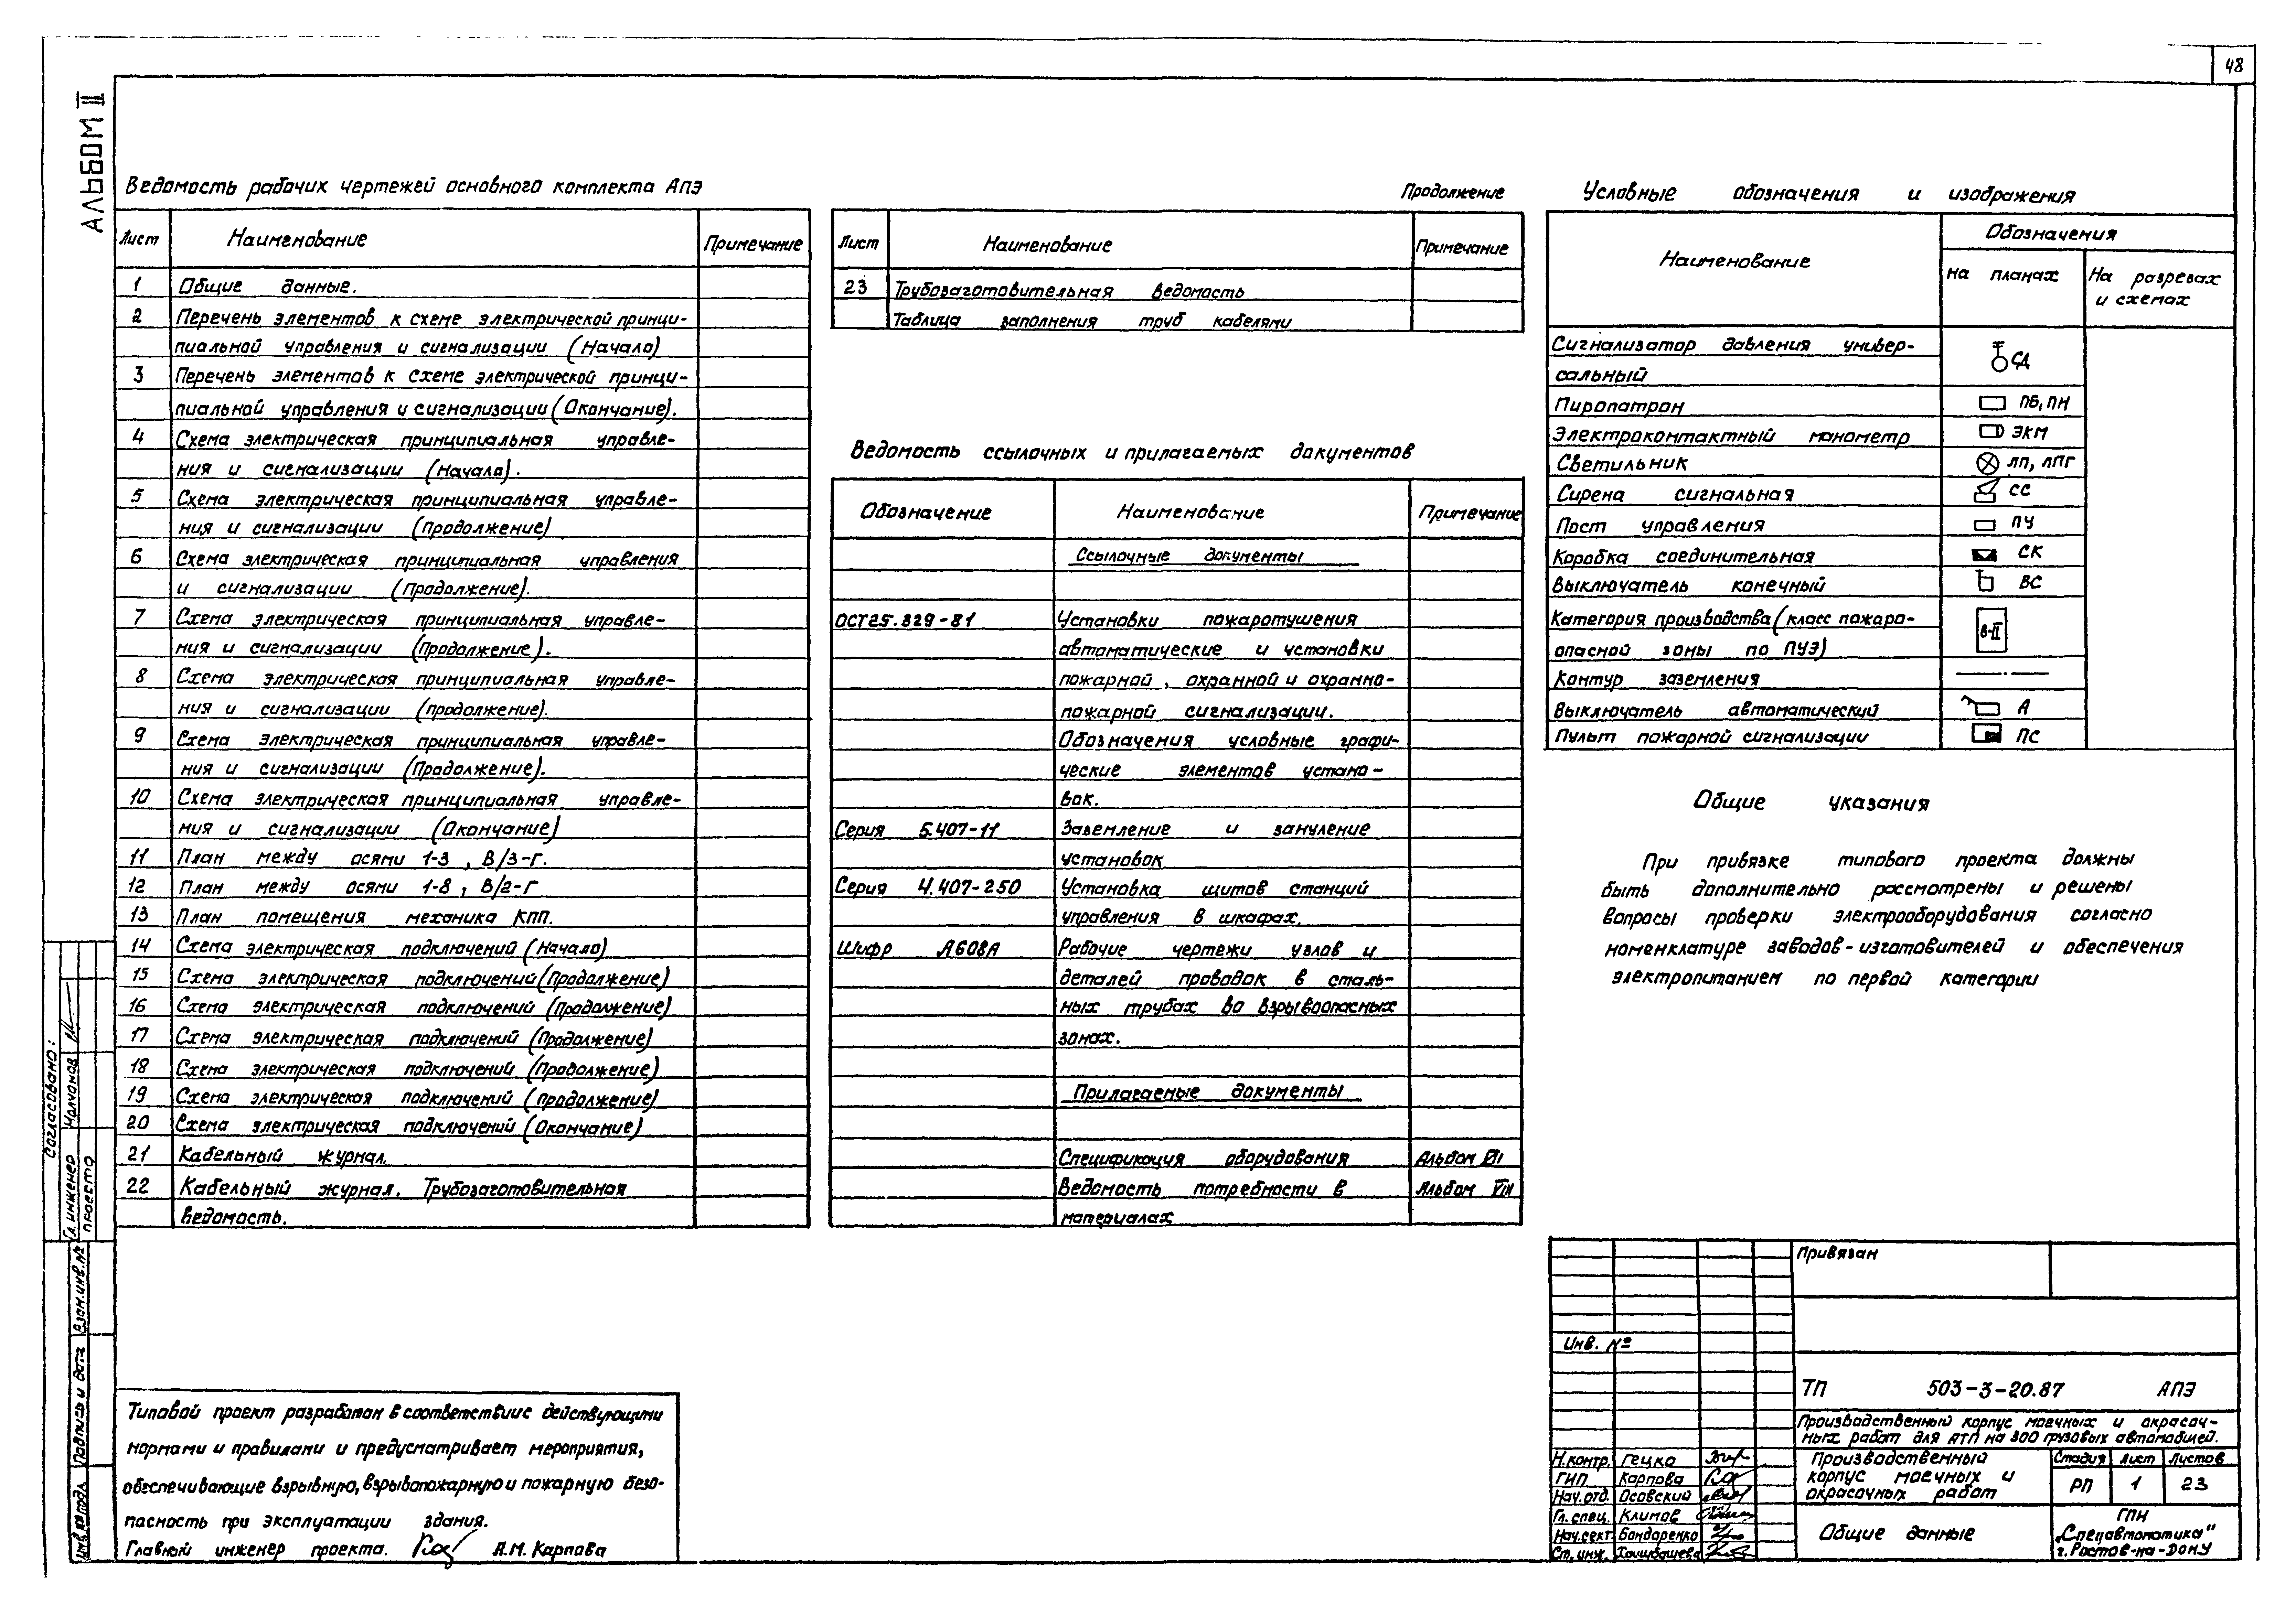 48
АЛЬБОМ II
Ведомость рабочих чертежей основного комплекта АПЭ
Лист Наименование Примечание
1 Общие данные.
2 Перечень элементов к схеме электрической принци-
пиальной управления и сигнализации (Начало)
3 Перечень элементов к схеме электрической принци-
пиальной управления и сигнализации (Окончание).
4 Схема электрическая принципиальная управле-
ния и сигнализации (Начало).
5 Схема электрическая принципиальная управле-
ния и сигнализации (Продолжение)
6 Схема электрическая принципиальная управления
и сигнализации (Продолжение).
7 Схема электрическая принципиальная управле-
ния и сигнализации (Продолжение).
8 Схема электрическая принципиальная управле-
ния и сигнализации (Продолжение).
9 Схема электрическая принципиальная управле-
ния и сигнализации (Продолжение).
10 Схема электрическая принципиальная управле-
ния и сигнализации (Окончание)
11 План между осями 1-3, В/3-Г.
12 План между осями 1-8, В/2-Г
13 План помещения механика КПП.
14 Схема электрическая подключений (Начало)
15 Схема электрическая подключений (Продолжение)
16 Схема электрическая подключений (Продолжение)
17 Схема электрическая подключений (Продолжение)
18 Схема электрическая подключений (Продолжение)
19 Схема электрическая подключений (Продолжение)
20 Схема электрическая подключений (Окончание)
21 Кабельный журнал.
22 Кабельный журнал. Трубозаготовительная
ведомость.
Продолжение
Лист Наименование Примечание
23 Трубозаготовительная ведомость
Таблица заполнения труб кабелями
Ведомость ссылочных и прилагаемых документов
Обозначение Наименование Примечание
Ссылочные документы
ОСТ25.329-81 Установки пожаротушения
автоматические и установки
пожарной, охранной и охранно-
пожарной сигнализации.
Обозначения условные графи-
ческие элементов устано-
вок.
Серия 5.407-11 Заземление и зануление
установок
Серия 4.407-250 Установка щитов станций
управления в шкафах.
Шифр А608А Рабочие чертежи узлов и
деталей проводок в сталь-
ных трубах во взрывоопасных
зонах.
Прилагаемые документы
Спецификация оборудования Альбом VII
Ведомость потребности в Альбом VIII
материалах
Условные обозначения и изображения
Наименование Обозначения
На планах На разрезах
и схемах
Сигнализатор давления универ-
сальный СД
Пиропатрон ПБ, ПН
Электроконтактный манометр ЭКМ
Светильник ЛП, ЛПГ
Сирена сигнальная СС
Пост управления ПУ
Коробка соединительная СК
Выключатель конечный ВС
Категория производства (класс пожаро-
опасной зоны по ПУЭ) В-II
Контур заземления
Выключатель автоматический А
Пульт пожарной сигнализации ПС
Общие указания
При привязке типового проекта должны
быть дополнительно рассмотрены и решены
вопросы проверки электрооборудования согласно
номенклатуре заводов-изготовителей и обеспечения
электропитанием по первой категории
Согласовано:
Гл. инженер проекта
Взам. инв. №
Подпись и дата
Инв. № подл.
Типовой проект разработан в соответствие действующими
нормами и правилами и предусматривает мероприятия,
обеспечивающие взрывную, взрывопожарную и пожарную безо-
пасность при эксплуатации здания.
Главный инженер проекта. А.М. Карпова
Привязан
Инв. №
ТП 503-3-20.87 АПЭ
Производственный корпус моечных и окрасоч-
ных работ для АТП на 300 грузовых автомобилей.
Н.контр. Гецко
ГИП Карпова
Нач.отд. Осовский
Гл. спец. Климов
Нач.сект. Бондаренко
Ст. инж.
Производственный
корпус моечных и
окрасочных работ
Стадия Лист Листов
РП 1 23
Общие данные
ГПИ
„Спецавтоматика"
г. Ростов-на-Дону